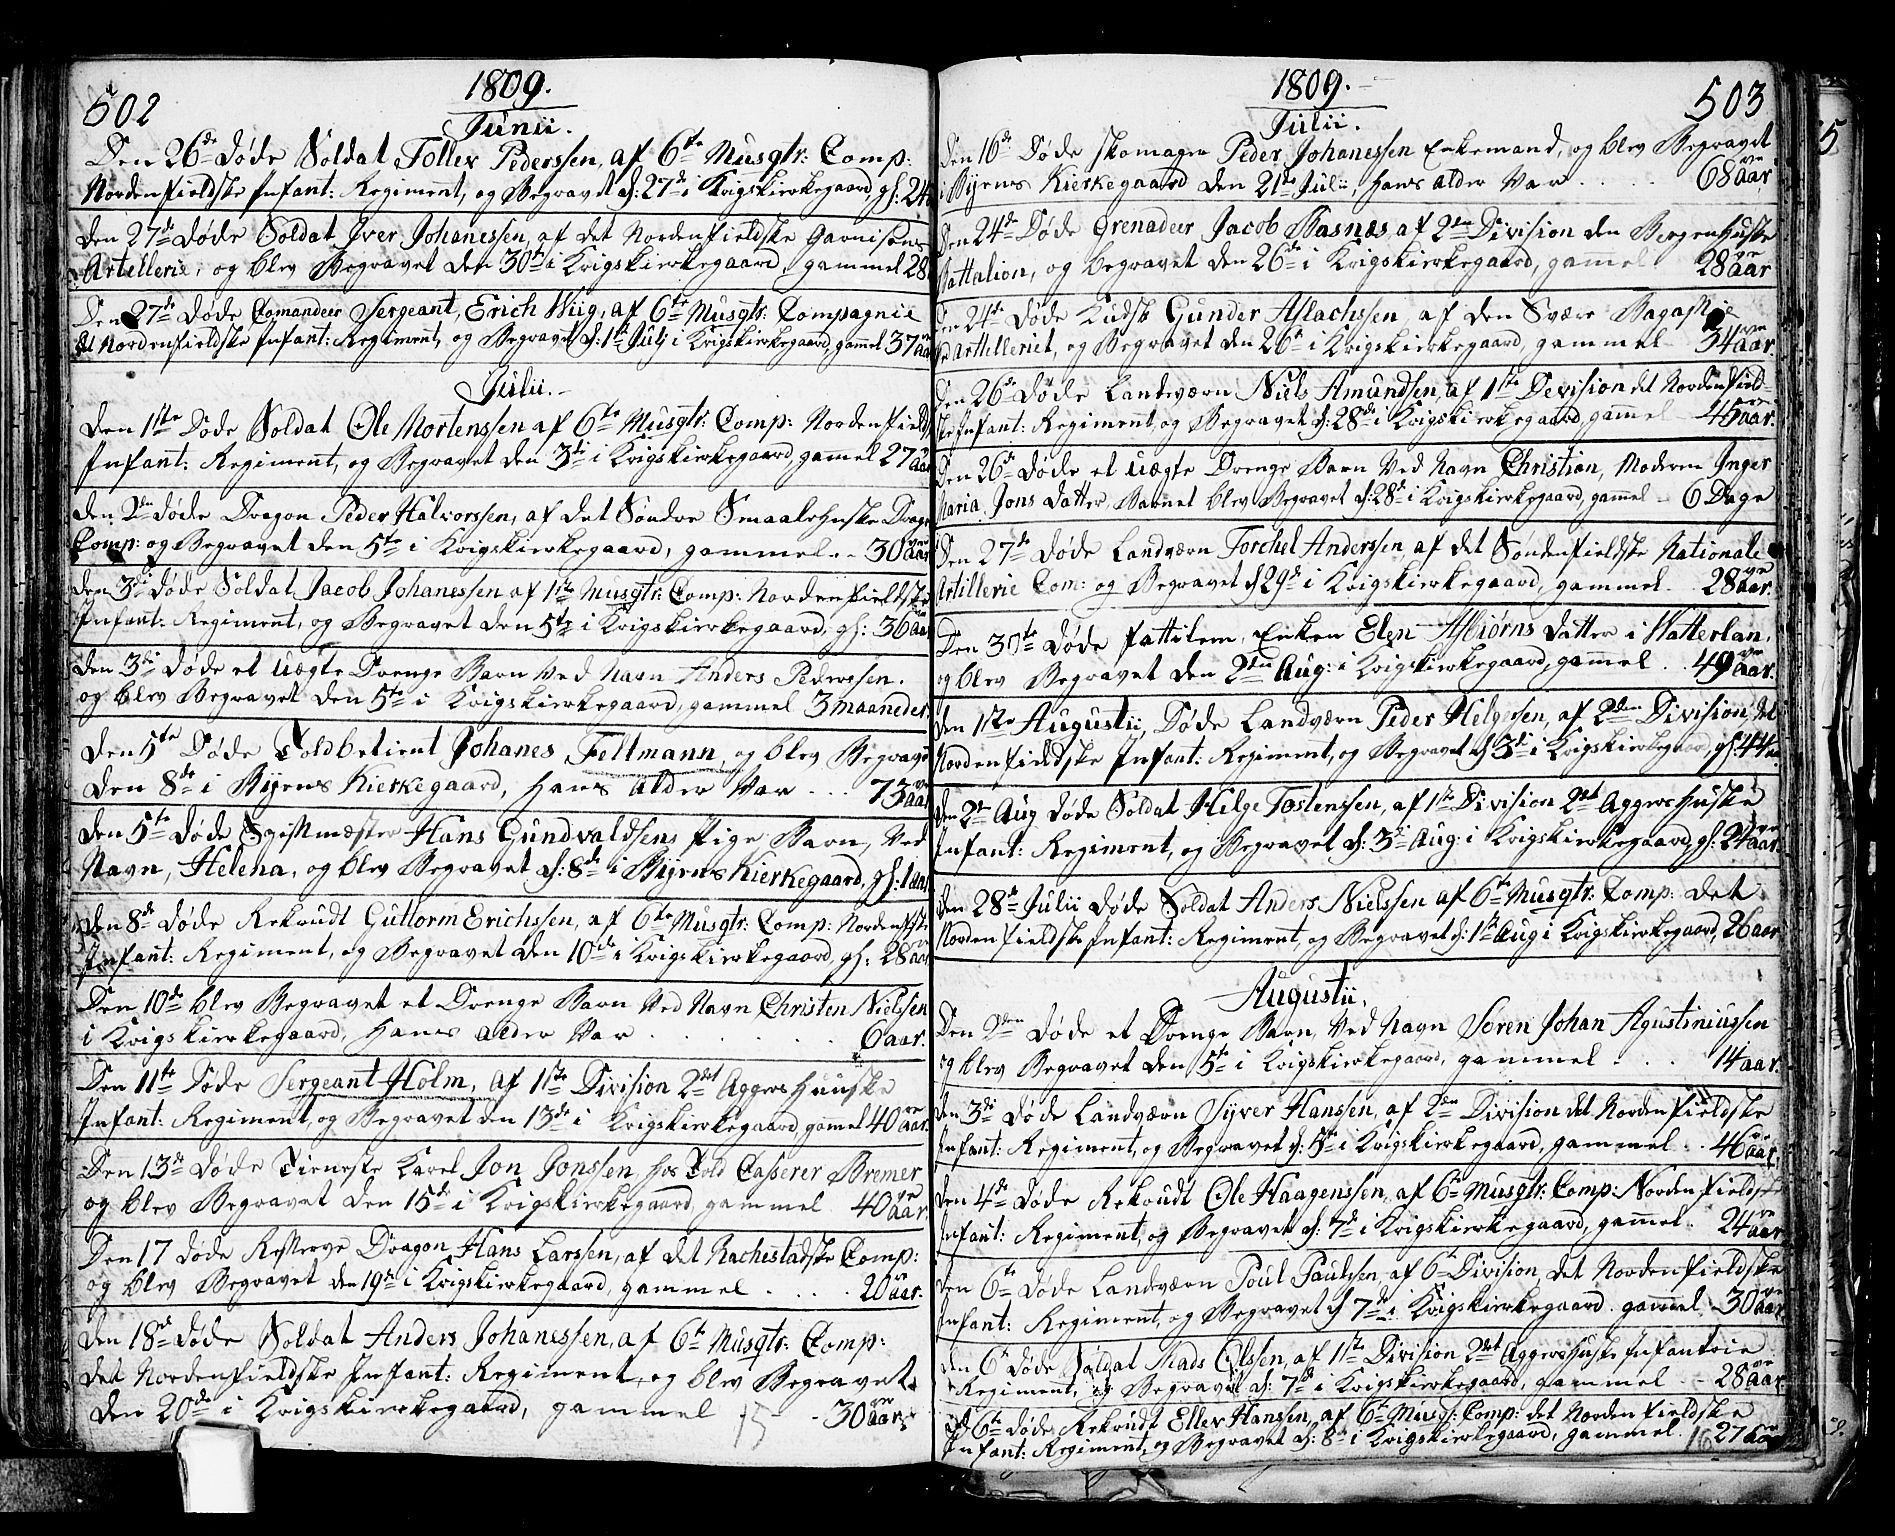 502
1809.
Junii.
Den 26de Døde Soldat Tollev Pederssen, af 6te Musqtr: Comp:
Nordenfieldske Infant: Regiment, og Begravet d: 27de i Krigskierkegaard, gl: 24
Den 27de Døde Soldat Iver Johanessen, af det Nordenfieldske Garnisons
Artellerie, og blev Begravet den 30te i Krigskierkegaard, gammel 28
Den 27de Døde Comandeer Sergeant, Erich Wiig, af 6te Musqtr: Compagnie
det Nordenfieldske Infant: Regiment, og Begravet d: 1ste Julj i Krigskierkegaard, gammel 37 aar
Julii.
Den 1ste Døde Soldat Ole Mortenssen af 6te Musqtr: Comp: Nordenfields
Infant: Regiment, og Begravet den 3di i Krigskierkegaard, gammel 27 aar
Den 2den Døde Dragon Peder Halvorssen, af det Søndre Smaalehnske Drag
Comp: og Begravet den 5te i Krigskierkegaard, gammel .. 30 aar
Den 3di Døde Soldat Jacob Johanessen af 1ste Musqtr: Comp: Nordenfieldske
Infant: Regiment, og Begravet den 5te i Krigskierkegaard, gl: 36 aar
Den 3di Døde et uægte Drenge Barn Ved Navn Anders Pederssen.
og blev Begravet den 5te i Krigskierkegaard, gammel 3 maaneder.
Den 5te Døde Toldbetient Johanes Feltmann, og blev Begravet
Den 8de i Byens Kierkegaard, hans alder Var ... 73 aar
Den 5te Døde Spiismæster Hans Gundvaldsens Pige Barn, Ved
Navn, Helena, og blev Begravet d: 8de i Byens Kierkegaard, gl: 1 aar
Den 8de Døde Rekrudt Guttorm Erichssen, af 6te Musqtr: Comp: Nordenfields
Infant: Regiment, og Begravet den 10de i Krigskierkegaard, gl: 28 aar
Den 10de blev Begravet et Drenge Barn Ved Navn Christen Nielssen
i Krigskierkegaard, hans alder Var ...... 6 aar.
Den 11te Døde Sergeant Holm, af 1ste Division 2det Aggershuuske
Infant: Regiment, og Begravet den 13de i Krigskierkegaard, gamel 40 aar.
Den 13de Døde Tieneste Karel Jon Jonssen, hos Told Casserer Bremer
og blev Begravet den 15de i Krigskierkegaard, gammel . 40 aar.
Den 17 Døde Resserve Dragon Hans Larssen, af det Rachestadske Comp:
og blev Begravet den 19de i Krigskierkegaard, gammel ..... 20 aar.
Den 18de Døde Soldat Anders Johanessen, af 6te Musqtr: Comp:
det Nordenfieldske Infant: Regiment, og blev Begravet
den 20de i Krigskierkegaard, gammel 15 - 30 aar
503
1809.
Julii.
Den 16de Døde Skomager Peder Johanessen Enkemand, og blev Begravet
i Byens Kierkegaard den 21de Julii, hans alder Var ..... 68 aar
Den 24de Døde Grenadeer Jacob Basnæs af 2den Division den Bergenhuske
Battalion, og begravet den 26de i Krigskierkegaard, gammel 28 aar
Den 24de Døde Kudsk Gunder Aslachssen, af den Svære Bagaskie
ved Arthilleriet, og Begravet den 26de i Krigskierkegaard, gammel 34 aar.
Den 26de Døde Landværn Niels Amundsen, af 1ste Devision det Nordenfield-
ske Infant: Regiment, og Begravet d: 28de i Krigskierkegaard, gammel - 45 aar.
Den 26de Døde et uægte Drenge Barn Ved Navn Christian, Moderen Inger
Maria Jons Datter, Barnet blev Begravet d: 28de i Krigskierkegaard, gammel - 6 Dage
Den 27de Døde Landværn Torchel Anderssen, af det Søndenfieldske Nationale
Artillerie Com: og Begravet d 29de i Krigskierkegaard, gammel. 28 aar.
Den 30te Døde fattilem, Enken Elen Asbiørns Datter i Watterlan,
og blev Begravet den 2den Aug: i Krigskierkegaard, gammel . 49 aar.
Den 1ste Augustii, Døde Landværn Peder Helgesen, af 2den Division, det
Nordenfieldske Infant: Regiment, og Begravet d 3di i Krigskierkegaard, gl. 44 aar
Den 2den Aug Døde Soldat Helge Tostenssen, af 1ste Division 2det Aggershuske
Infant: Regiment, og Begravet d: 3di Aug i Krigskierkegaard, gl: 24 aar.
Den 28de Julii Døde Soldat Anders Nielssen af 6te Musqtr: Comp: det
Nordenfieldske Infant: Regiment, og Begravet d: 1ste Aug i Krigskierkegaard, 26 aar
Augustii.
Den 2den Døde et Drenge Barn, Ved Navn Søren Johan Agustiniussen
og blev Begravet den 5te i Krigskierkegaard, gammel .... 14 aar.
Den 3di Døde Landværn Syver Hanssen, af 2den Division det Nordenfieldske
Infant: Regiment, og Begravet d: 5te i Krigskierkegaard, gammel .. 46 aar,
Den 4de Døde Rekrudt Ole Haagenssen, af 6te Musqtr: Comp: Nordenfields
Infant: Regiment, og Begravet d: 7de i Krigskierkegaard, gammel. 24 aar
Den 6te Døde Landværn Poul Paulssen, af 6te Division, det Nordenfieldske
Infant: Regiment, og Begravet d 7de i Krigskierkegaard. gammel 30 aar
Den 6te Døde Soldat Mads Olssen, af 1ste Division 2det Aggershuske Infanterie
Regiment, og Begravet d: 7de i Krigskierkegaard, gammel - - 28 aar
D 6te Døde Rekrudt Ellev Hanssen, af 6te Musqt: Comp: det Nordenfieldske
Infant: Regiment, og Begravet d: 8de i Krigskierkegaard, gammel. 16 27 aar